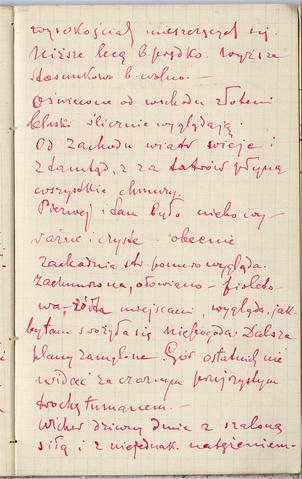 wysokościach mieszczących się.
Niższe lecą b. prędko. Wyższe
stosunkowo b. wolno. —
Oświecone od wschodu złotemi
blaski ślicznie wyglądają.
Od zachodu wiatr wieje i
stamtąd, z za Tatrów płyną
wszystkie chmury.
Pierwej i tam było niebo wy-
raźne i czyste — obecnie
zachodnia str. ponuro wygląda.
Zachmurzona, ołowiano - fioleto-
wa, żółta miejscami, wygląda, jak-
by tam srożyła się niepogoda. Dalsze
plany zamglone. Gór ostatnich nie
widać za czarnym przejrzystym
trochę tumanem. —
Wicher dziwny dmie z szaloną
siłą i z niejednak. natężeniem. -